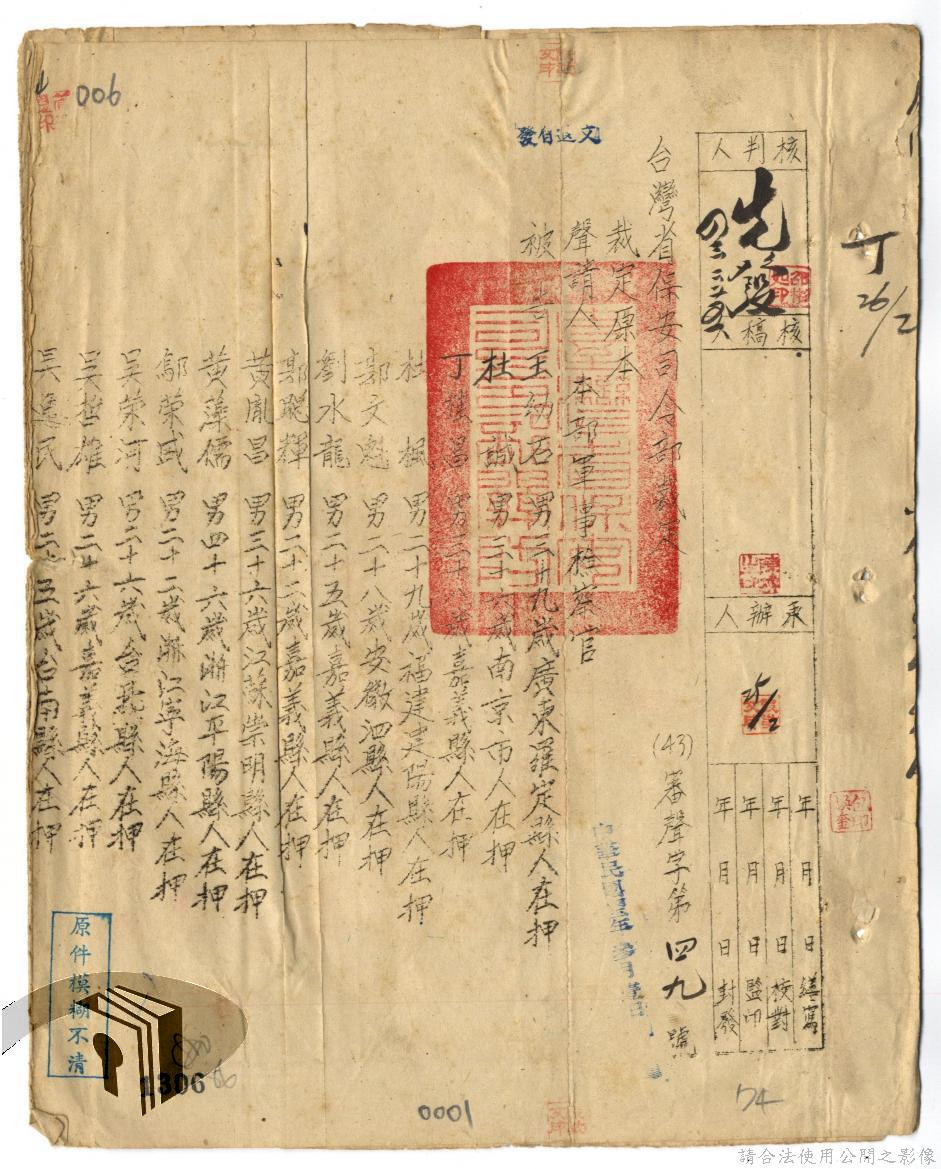 006
文送自發
核判人
先發
核稿
承辦人
25/2
年 月 日 繕寫
年 月 日 校對
年 月 日 監印
年 月 日 封發
丁
26/2
台灣省保安司令部裁定
(43)審聲字第四九號
裁定原本
聲請人 本部軍事檢察官
被告 王幼石 男三十九歲廣東羅定縣人在押
杜誠 男三十六歲南京市人在押
丁樸昌 男三十 歲嘉義縣人在押
杜楓 男二十九歲福建建陽縣人在押
郭文魁 男二十八歲安徽泗縣人在押
劉水龍 男二十五歲嘉義縣人在押
鄭聰輝 男二十二歲嘉義縣人在押
黃胤昌 男三十六歲江蘇崇明縣人在押
黃藻儒 男四十六歲浙江平陽縣人在押
鄔榮威 男二十二歲浙江寧海縣人在押
吳榮河 男二十六歲台 縣人在押
吳哲雄 男二十六歲嘉義縣人在押
吳逸民 男二十五歲台南縣人在押
原件模糊不清
1306
0001
74
請合法使用公開之影像